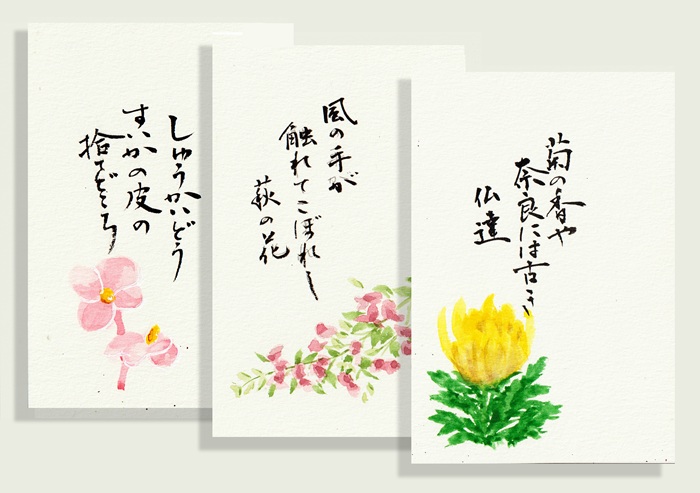 しゅうかいどう
すいかの皮の
捨てどころ
風の手が
触れてこぼれし
萩の花
菊の香や
奈良には古き
仏達